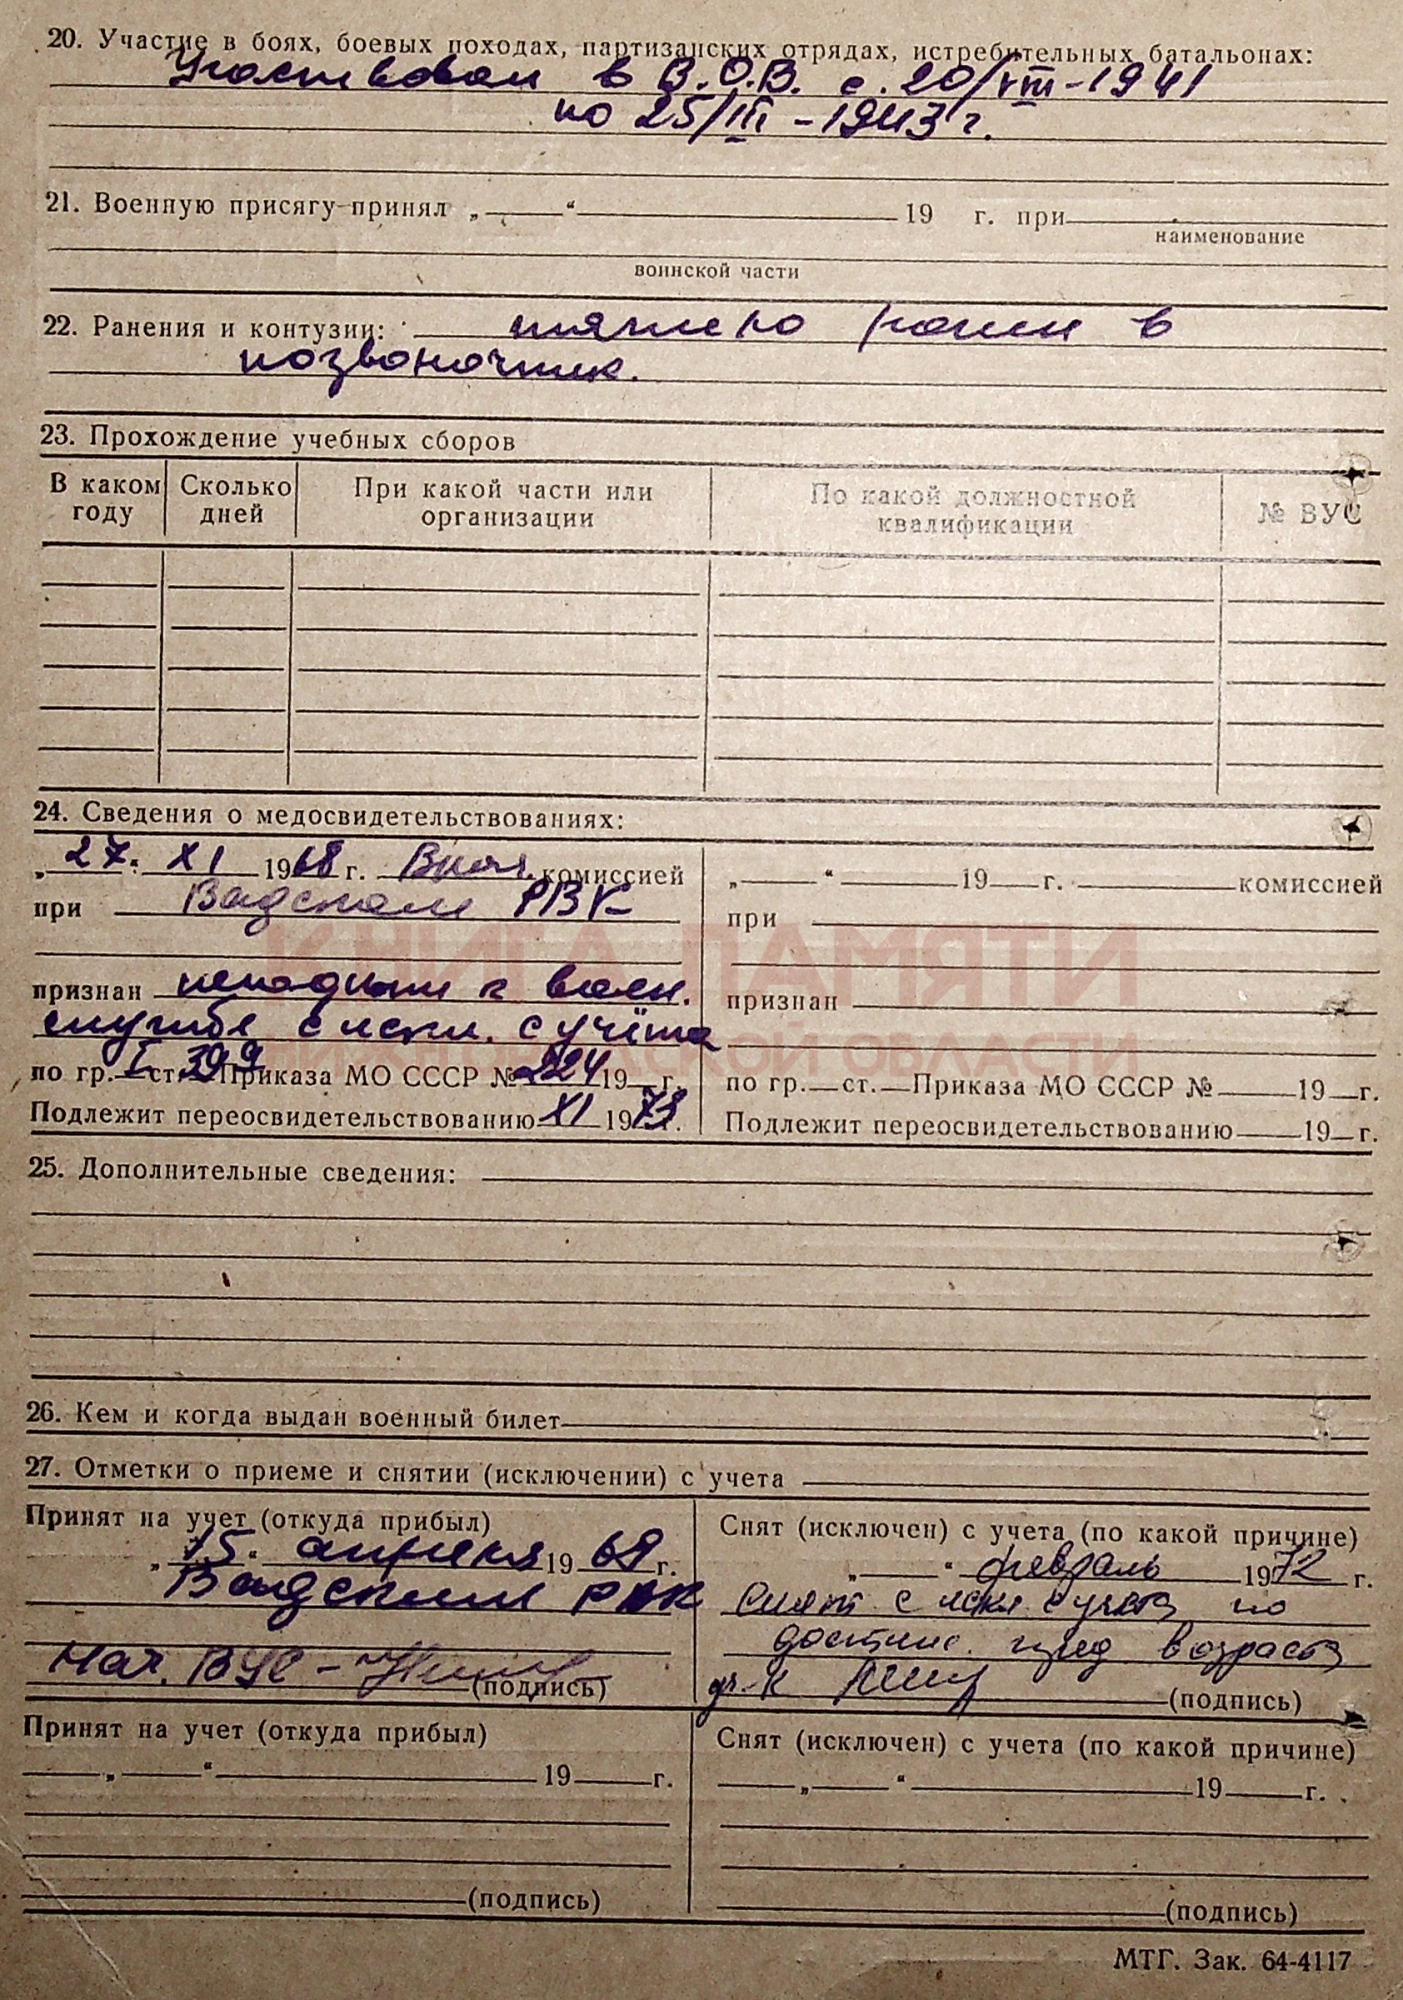 20. Участие в боях, боевых походах, партизанских отрядах, истребительных батальонах:
Участвовал в В.О.В. с 20/VIII-1941
по 25/III-1943 г.
21. Военную присягу принял „ “ 19 г. при
наименование
воинской части
22. Ранения и контузии: тяжело ранен в
позвоночник.
23. Прохождение учебных сборов
В каком году Сколько дней При какой части или организации По какой должностной квалификации № ВУС
24. Сведения о медосвидетельствованиях:
„27“ XI 1968 г. Врач. комиссией
при Вадском РВК
признан негодным к воен.
службе с искл. с учёта
по гр. I ст. 399 Приказа МО СССР № 224 19 г.
Подлежит переосвидетельствованию XI 1973 г.
„ “ 19 г. комиссией
при
признан
по гр. ст. Приказа МО СССР № 19 г.
Подлежит переосвидетельствованию 19 г.
КНИГА ПАМЯТИ
НИЖЕГОРОДСКОЙ ОБЛАСТИ
25. Дополнительные сведения:
26. Кем и когда выдан военный билет
27. Отметки о приеме и снятии (исключении) с учета
Принят на учет (откуда прибыл)
„15“ апреля 1969 г.
Вадским РВК
Нач. ВУС - (подпись)
Снят (исключен) с учета (по какой причине)
„ “ февраль 1972 г.
Снят с искл. с учета по
достиж. пред возраста
(подпись)
Принят на учет (откуда прибыл)
„ “ 19 г.
(подпись)
Снят (исключен) с учета (по какой причине)
„ “ 19 г.
(подпись)
МТГ. Зак. 64-4117